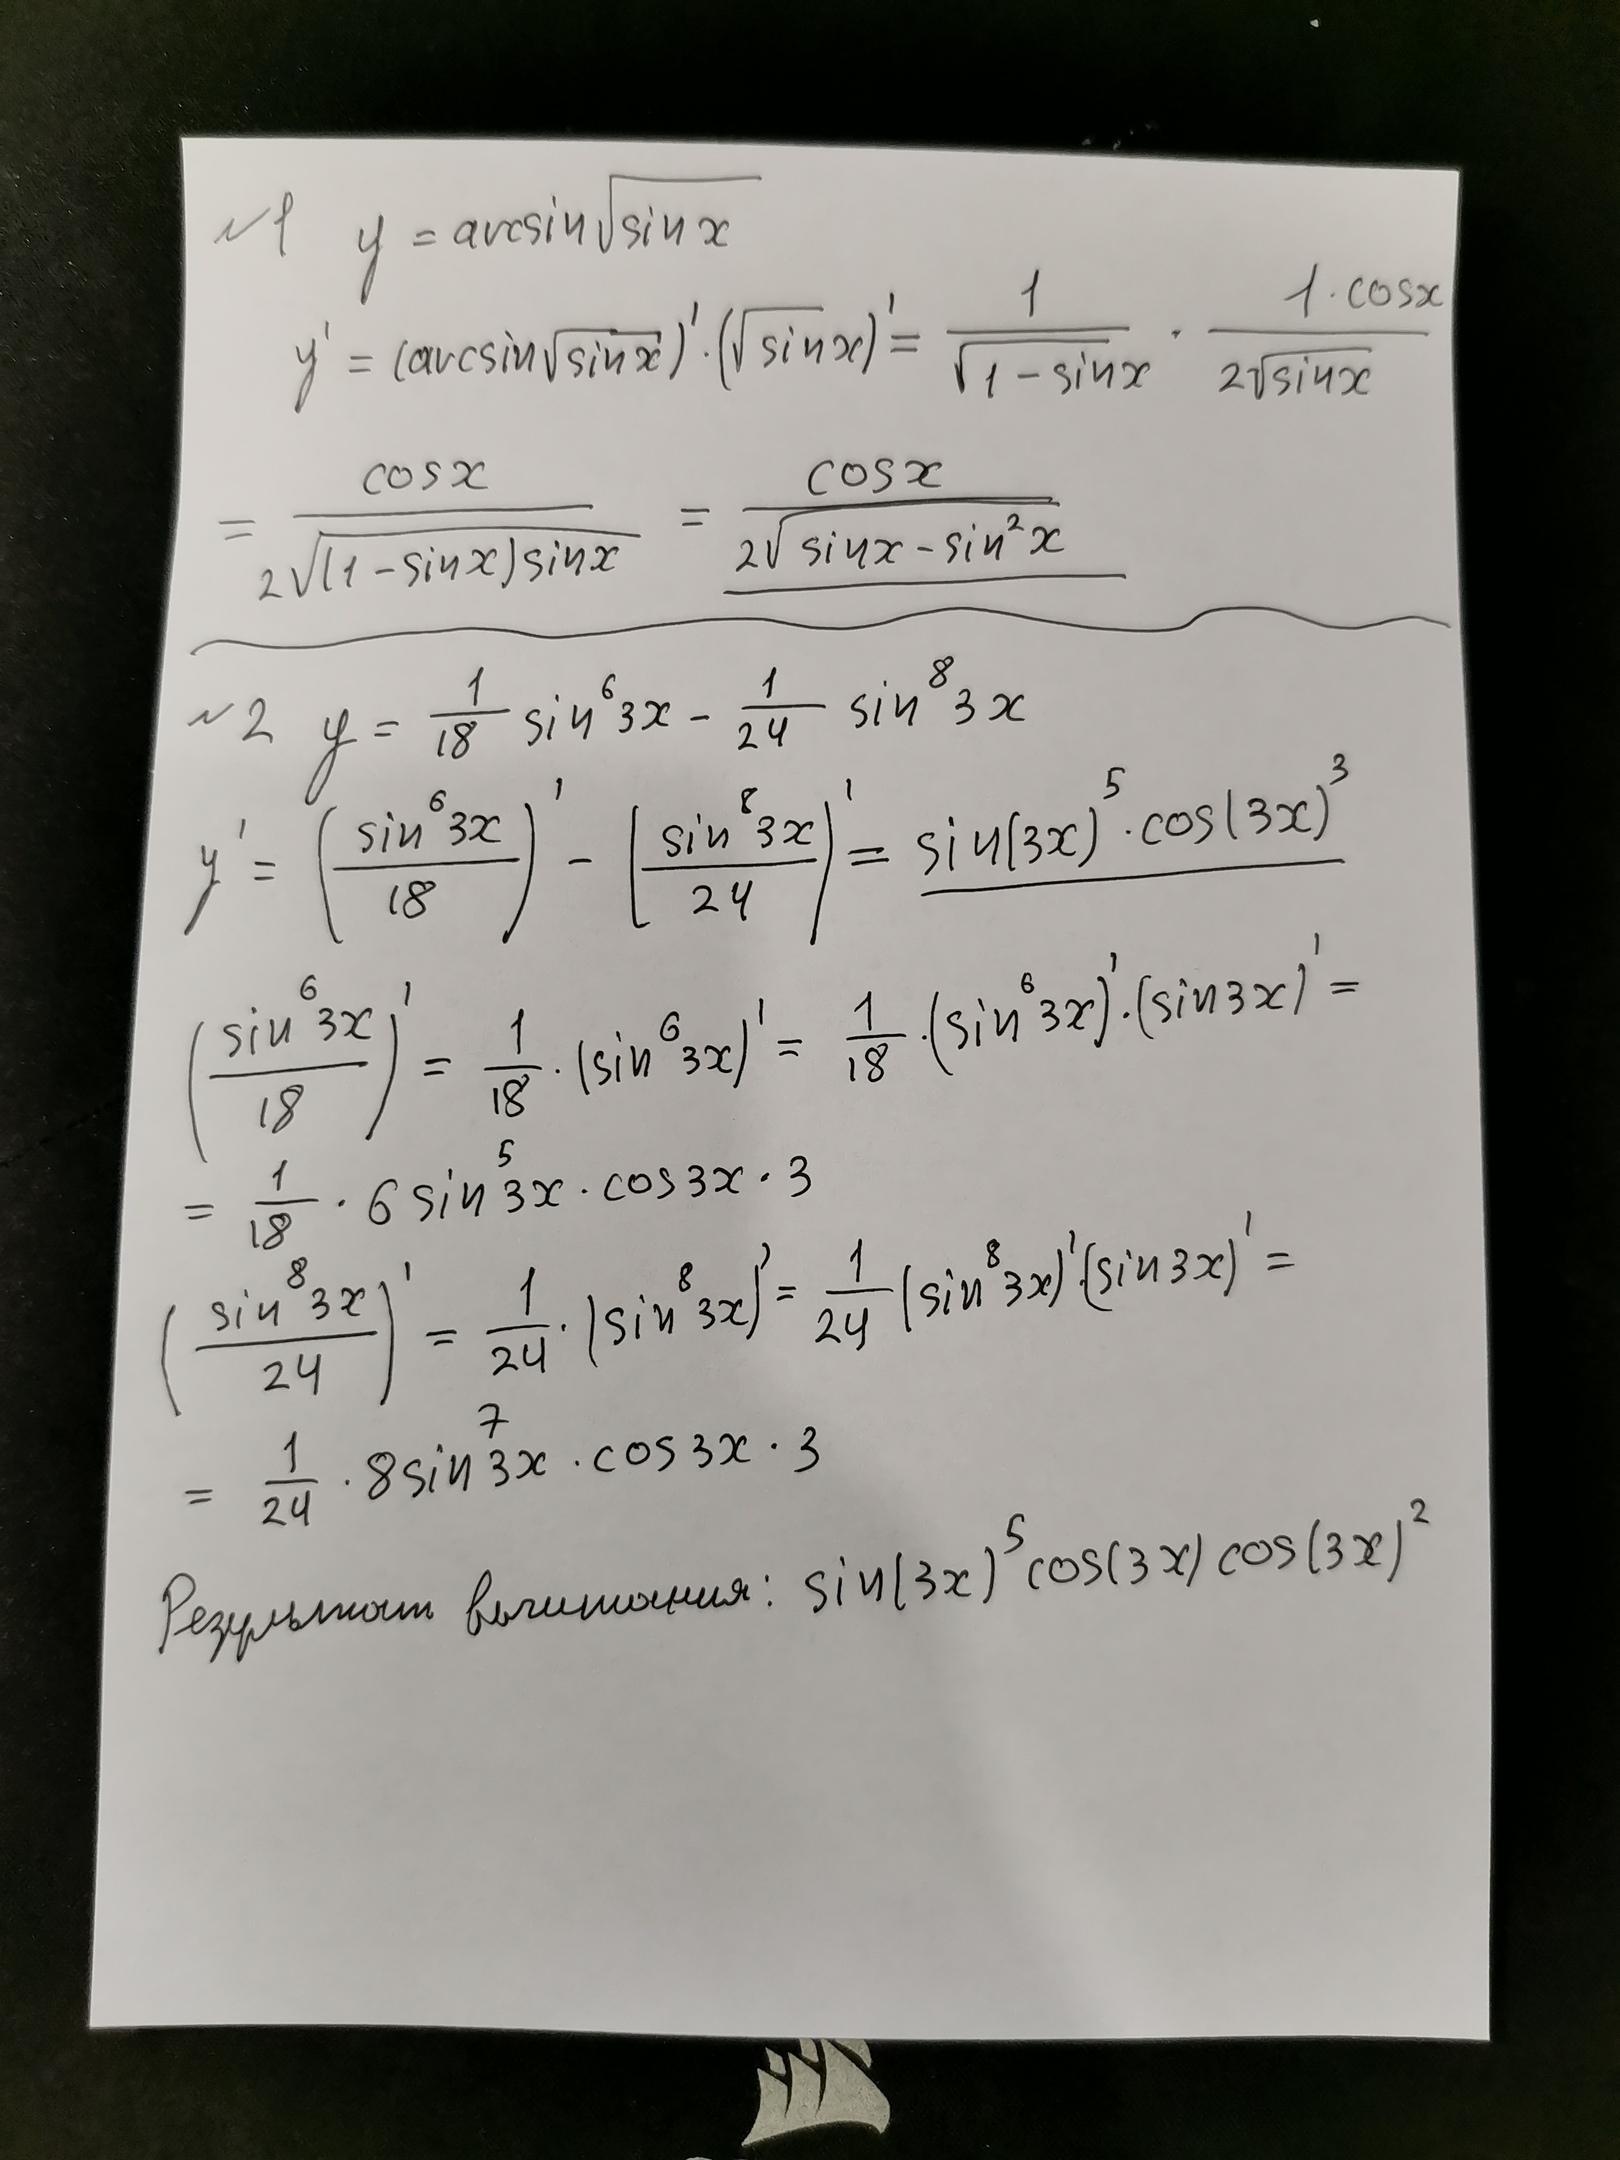 №1 y = arcsin√(sin x)
y' = (arcsin√(sin x))' · (√sin x)' = 1/√(1 - sin x) · (1 · cos x)/(2√(sin x))
= cos x/(2√((1 - sin x) sin x)) = cos x/(2√(sin x - sin²x))
№2 y = 1/18 sin⁶3x - 1/24 sin⁸3x
y' = (sin⁶3x/18)' - (sin⁸3x/24)' = sin(3x)⁵ · cos(3x)³
(sin⁶3x/18)' = 1/18 · (sin⁶3x)' = 1/18 · (sin⁶3x)' · (sin3x)' =
= 1/18 · 6 sin⁵3x · cos3x · 3
(sin⁸3x/24)' = 1/24 · (sin⁸3x)' = 1/24 (sin⁸3x)' · (sin3x)' =
= 1/24 · 8sin⁷3x · cos3x · 3
Результат вычитания: sin(3x)⁵cos(3x) cos(3x)²